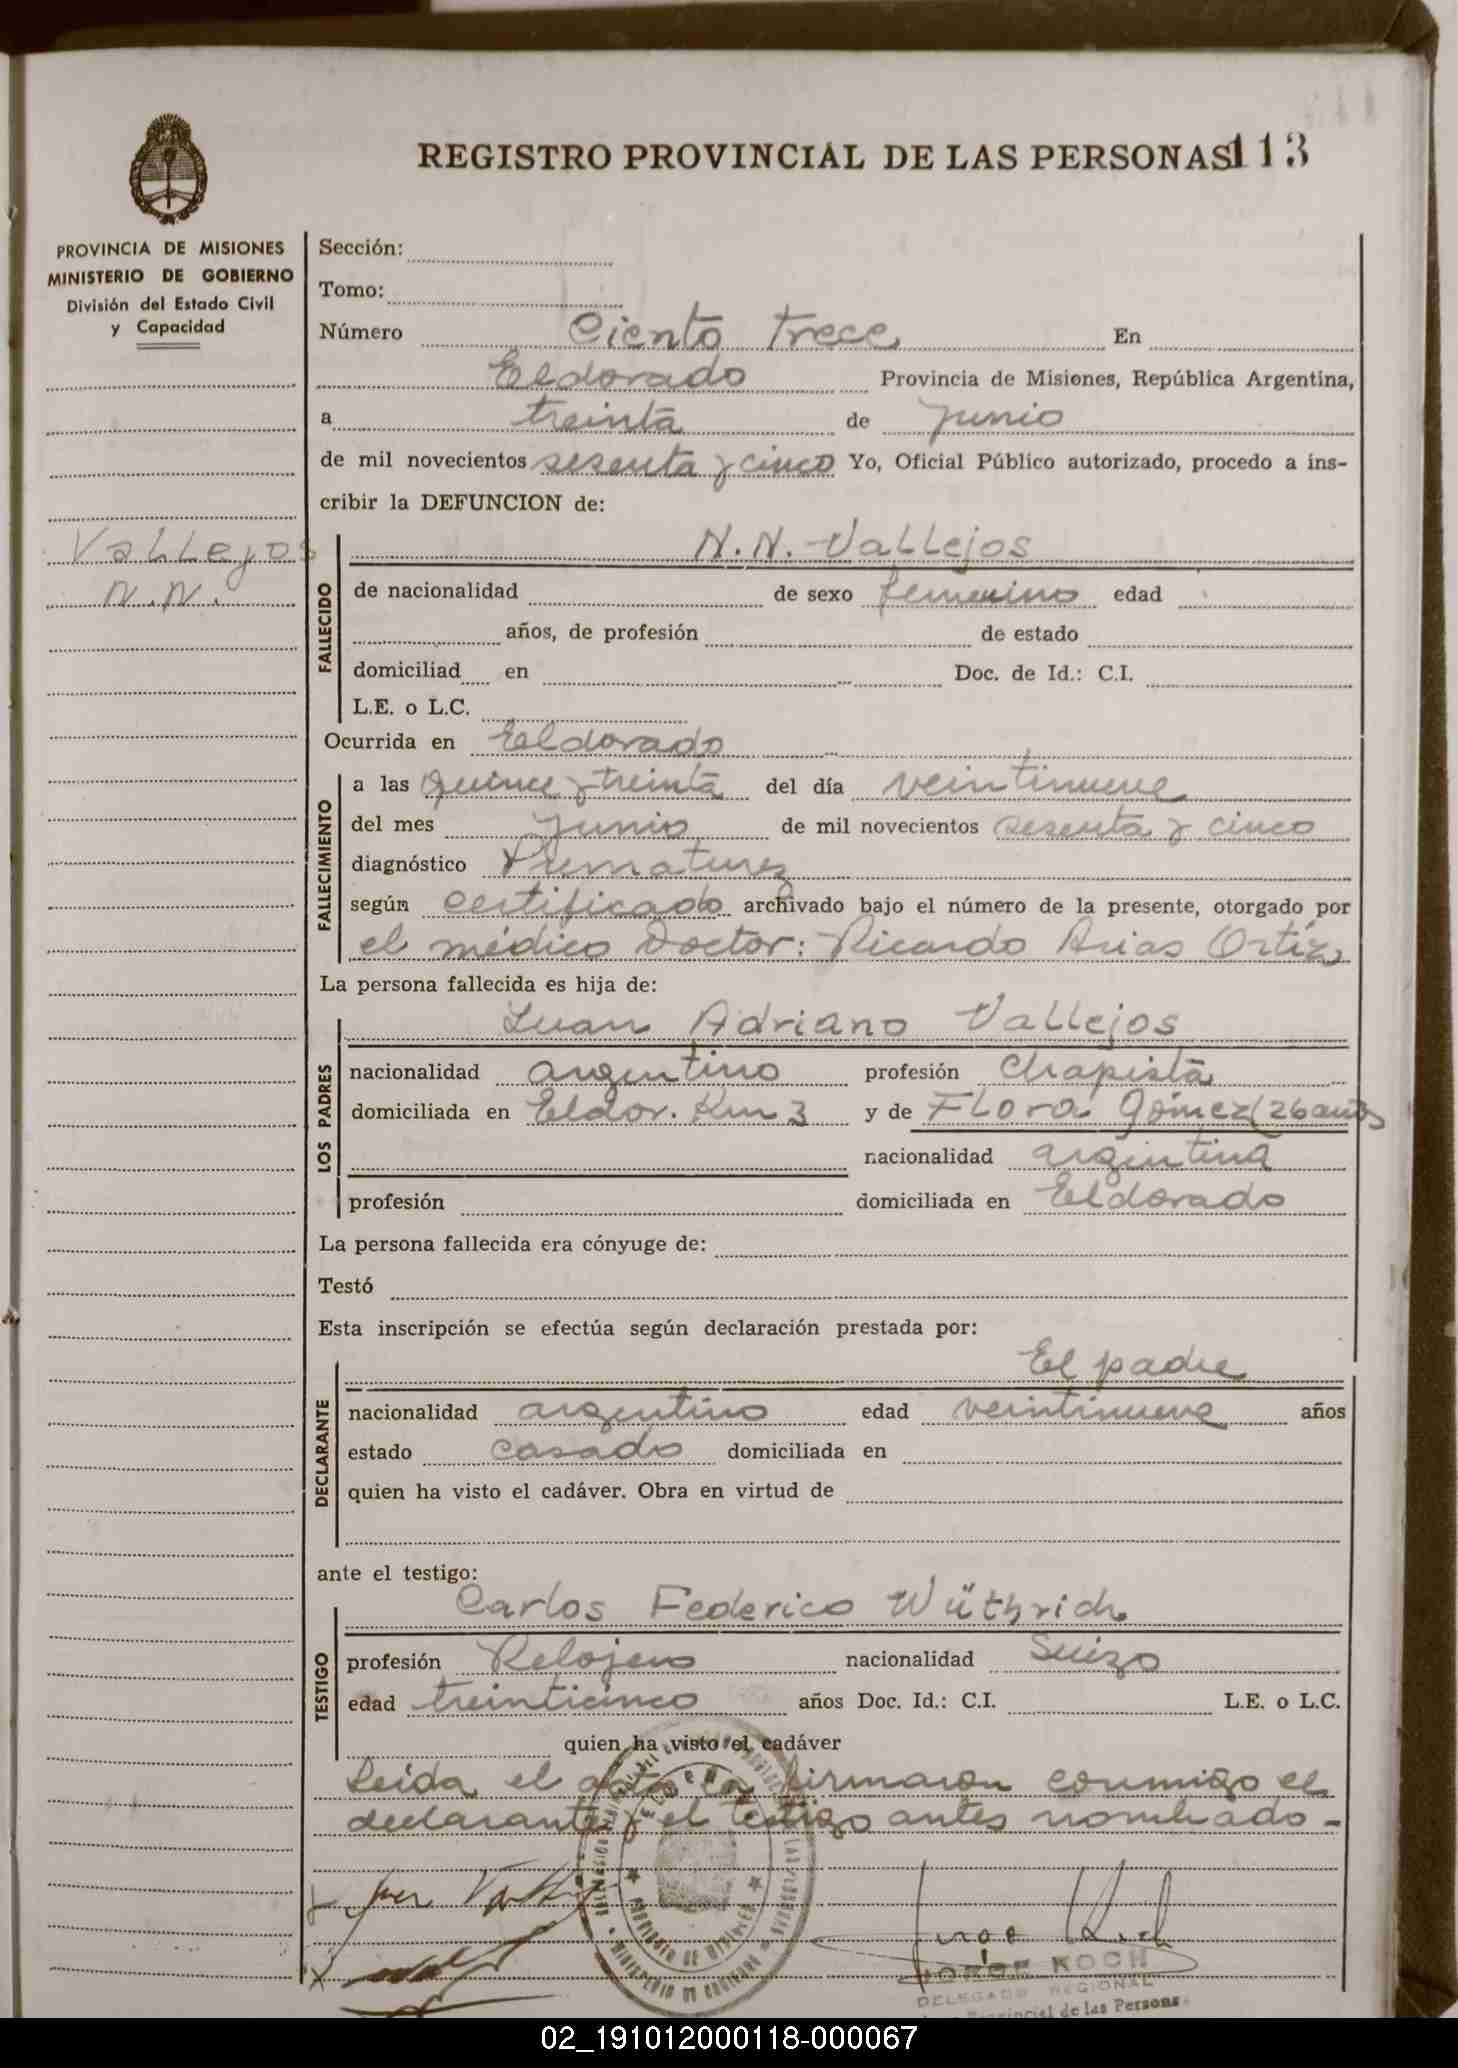 REGISTRO PROVINCIAL DE LAS PERSONAS 113
PROVINCIA DE MISIONES
MINISTERIO DE GOBIERNO
División del Estado Civil
y Capacidad
Vallejos
N.N.
Sección:
Tomo:
Número Ciento trece En
Eldorado Provincia de Misiones, República Argentina,
a treinta de junio
de mil novecientos sesenta y cinco Yo, Oficial Público autorizado, procedo a ins-
cribir la DEFUNCION de:
N.N. Vallejos
FALLECIDO
de nacionalidad de sexo femenino edad
años, de profesión de estado
domiciliad en Doc. de Id.: C.I.
L.E. o L.C.
Ocurrida en Eldorado
FALLECIMIENTO
a las quince y treinta del día veintinueve
del mes junio de mil novecientos sesenta y cinco
diagnóstico Prematurez
según certificado archivado bajo el número de la presente, otorgado por
el médico Doctor: Ricardo Arias Ortíz
La persona fallecida es hija de:
Juan Adriano Vallejos
LOS PADRES
nacionalidad argentino profesión Chapista
domiciliada en Eldor. Km 3 y de Flora Gómez (26 años
nacionalidad argentina
profesión domiciliada en Eldorado
La persona fallecida era cónyuge de:
Testó
Esta inscripción se efectúa según declaración prestada por:
El padre
DECLARANTE
nacionalidad argentino edad veintinueve años
estado casado domiciliada en
quien ha visto el cadáver. Obra en virtud de
ante el testigo:
Carlos Federico Wüthrich
TESTIGO
profesión Relojero nacionalidad Suizo
edad treinticinco años Doc. Id.: C.I. L.E. o L.C.
quien ha visto el cadáver
Leida el acta la firmaron conmigo el
declarante y el testigo antes nombrado -
Jorge Koch
JORGE KOCH
DELEGADO REGIONAL
Provincial de las Personas
02_191012000118-000067